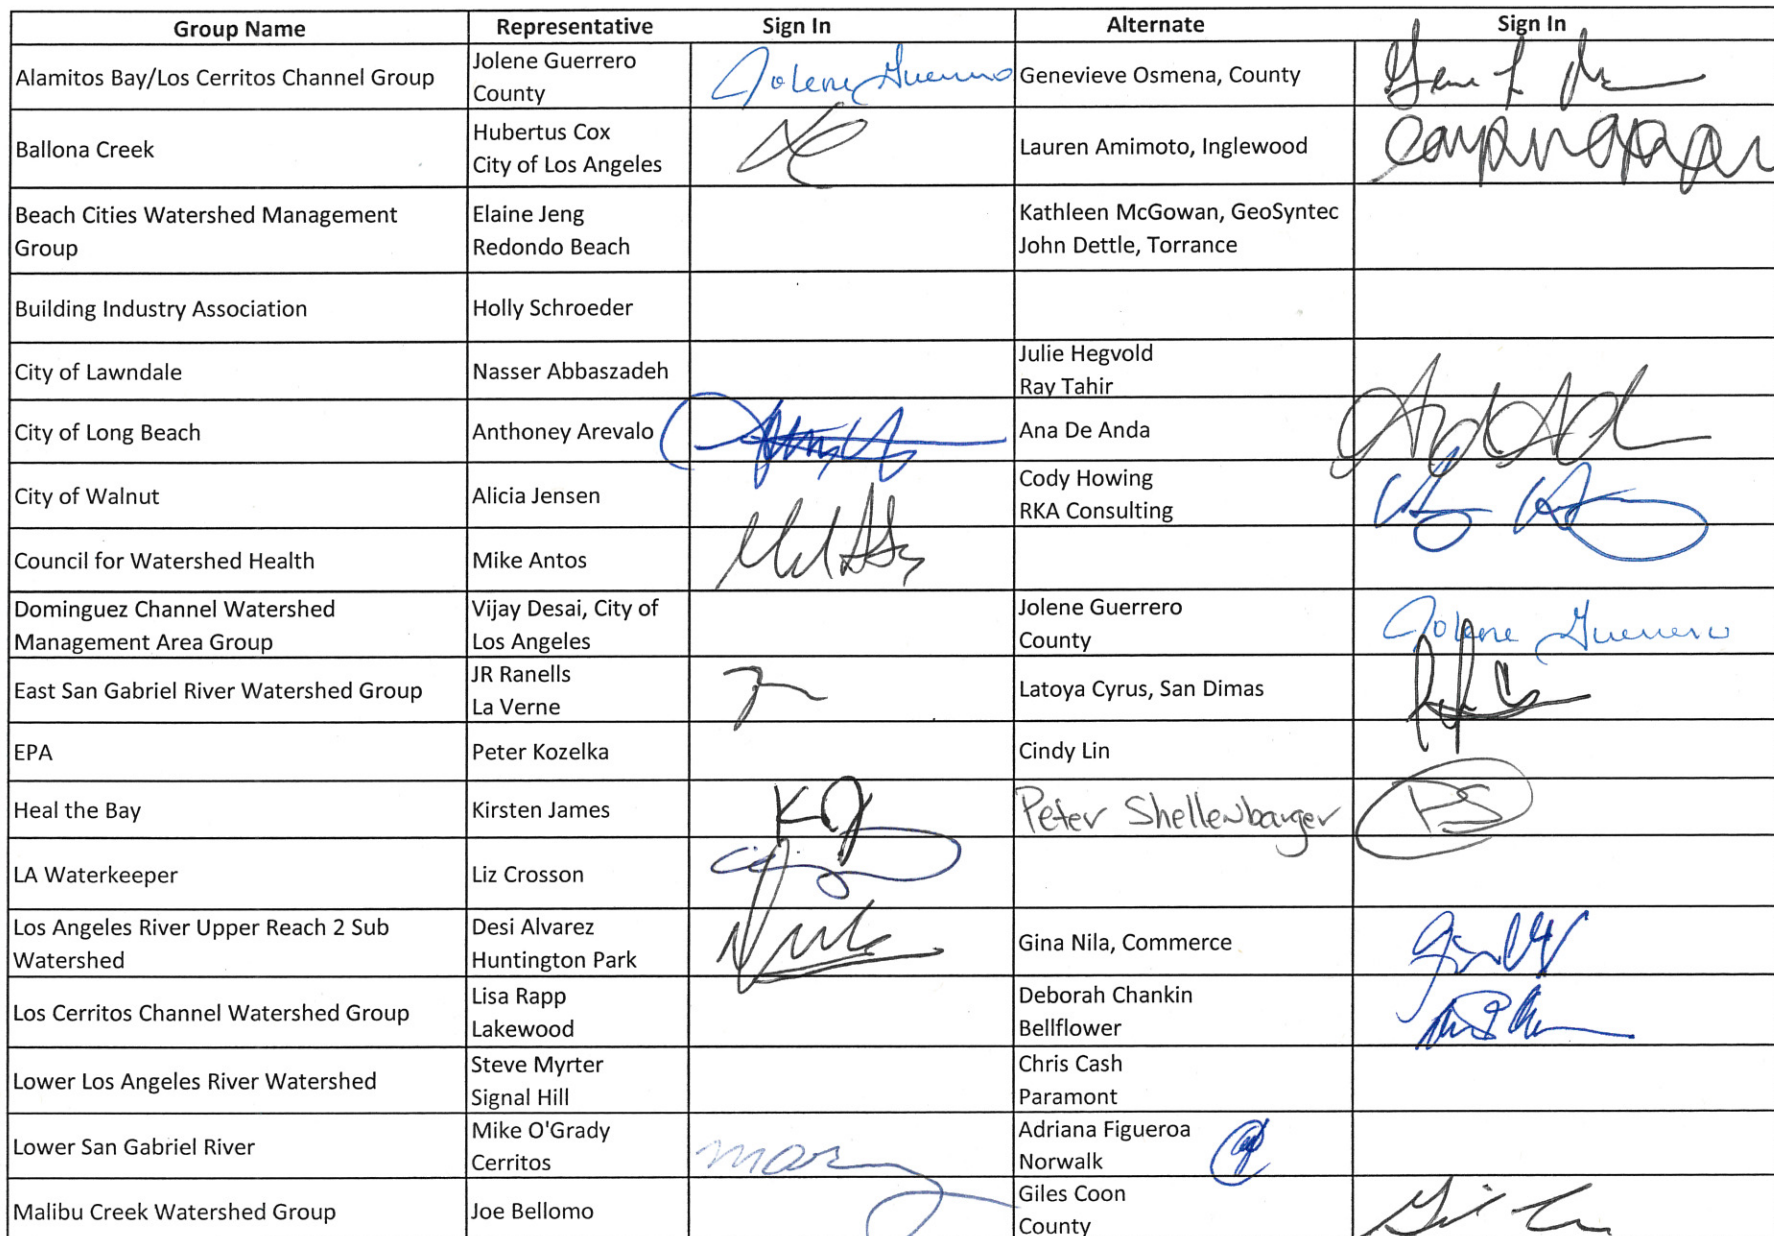 Group Name Representative Sign In Alternate Sign In
Alamitos Bay/Los Cerritos Channel Group Jolene Guerrero
County Jolene Guerrero Genevieve Osmena, County
Ballona Creek Hubertus Cox
City of Los Angeles Lauren Amimoto, Inglewood
Beach Cities Watershed Management
Group Elaine Jeng
Redondo Beach Kathleen McGowan, GeoSyntec
John Dettle, Torrance
Building Industry Association Holly Schroeder
City of Lawndale Nasser Abbaszadeh Julie Hegvold
Ray Tahir
City of Long Beach Anthoney Arevalo Ana De Anda
City of Walnut Alicia Jensen Cody Howing
RKA Consulting
Council for Watershed Health Mike Antos
Dominguez Channel Watershed
Management Area Group Vijay Desai, City of
Los Angeles Jolene Guerrero
County Jolene Guerrero
East San Gabriel River Watershed Group JR Ranells
La Verne Latoya Cyrus, San Dimas
EPA Peter Kozelka Cindy Lin
Heal the Bay Kirsten James KJ Peter Shellenbarger PS
LA Waterkeeper Liz Crosson
Los Angeles River Upper Reach 2 Sub
Watershed Desi Alvarez
Huntington Park Gina Nila, Commerce
Los Cerritos Channel Watershed Group Lisa Rapp
Lakewood Deborah Chankin
Bellflower
Lower Los Angeles River Watershed Steve Myrter
Signal Hill Chris Cash
Paramont
Lower San Gabriel River Mike O'Grady
Cerritos Adriana Figueroa
Norwalk
Malibu Creek Watershed Group Joe Bellomo Giles Coon
County